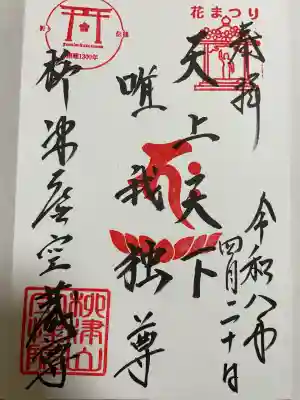 花まつり
奉拝
令和八年
四月二十日
天上天下
唯我独尊
柳津虚空蔵尊
1300年